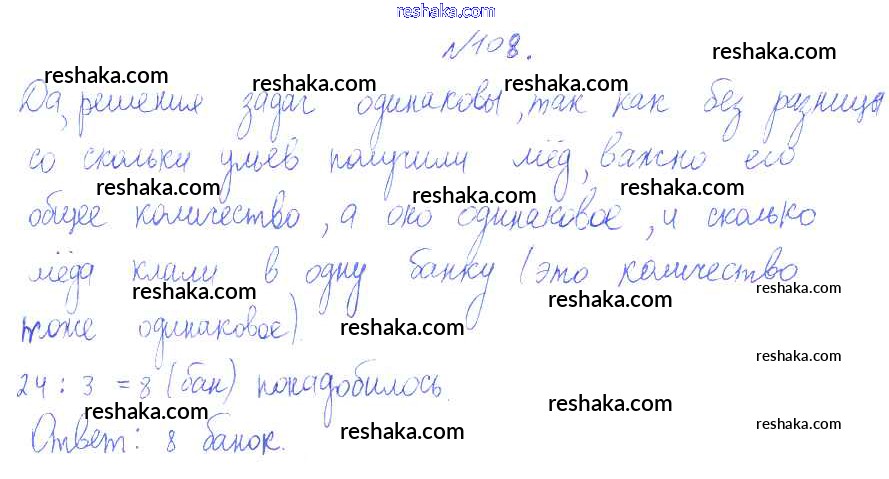 reshaka.com
№108.
reshaka.com
reshaka.com reshaka.com reshaka.com
Да, решения задач одинаковы, так как без разницы
со скольки ульев получили мёд, важно его
reshaka.com reshaka.com reshaka.com
общее количество, а оно одинаковое, и сколько
мёда клали в одну банку (это количество
reshaka.com reshaka.com reshaka.com
тоже одинаковое)
reshaka.com reshaka.com
24 : 3 = 8 (бан) понадобилось.
reshaka.com reshaka.com reshaka.com
Ответ: 8 банок.
reshaka.com